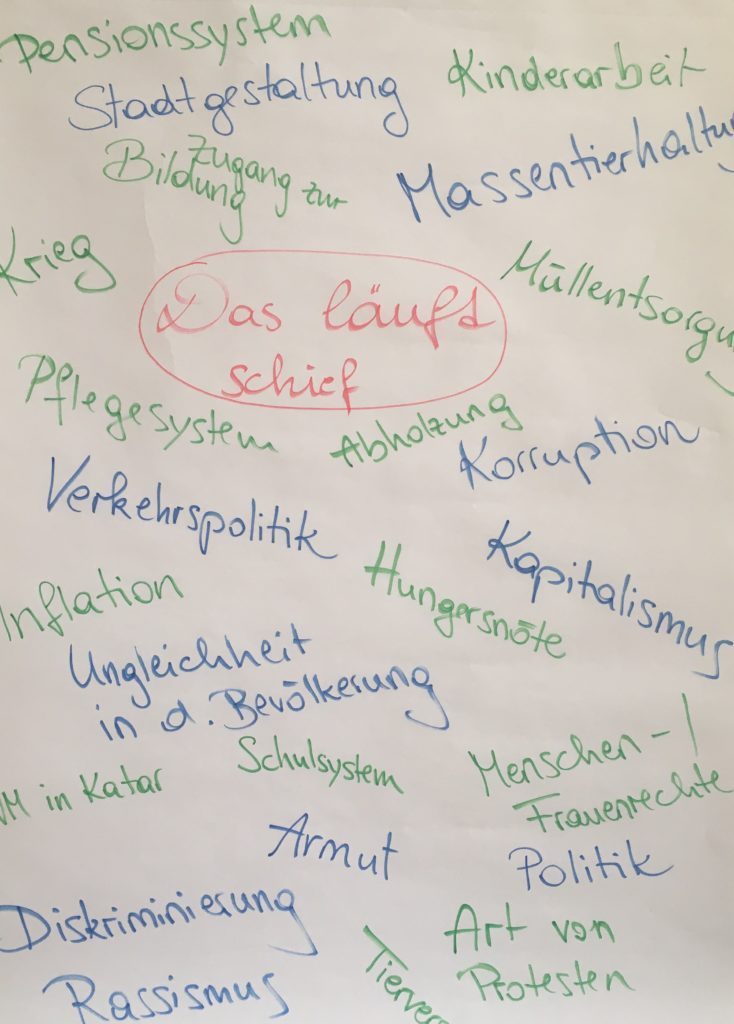 Pensionssystem
Kinderarbeit
Stadtgestaltung
Zugang zur
Bildung
Massentierhaltu
Krieg
Müllentsorgu
Das läuft
schief
Pflegesystem
Abholzung
Korruption
Verkehrspolitik
Kapitalismus
Hungersnöte
Inflation
Ungleichheit
in d. Bevölkerung
Schulsystem
Menschen - /
Frauenrechte
WM in Katar
Armut
Politik
Diskriminierung
Art von
Protesten
Rassismus
Tierver